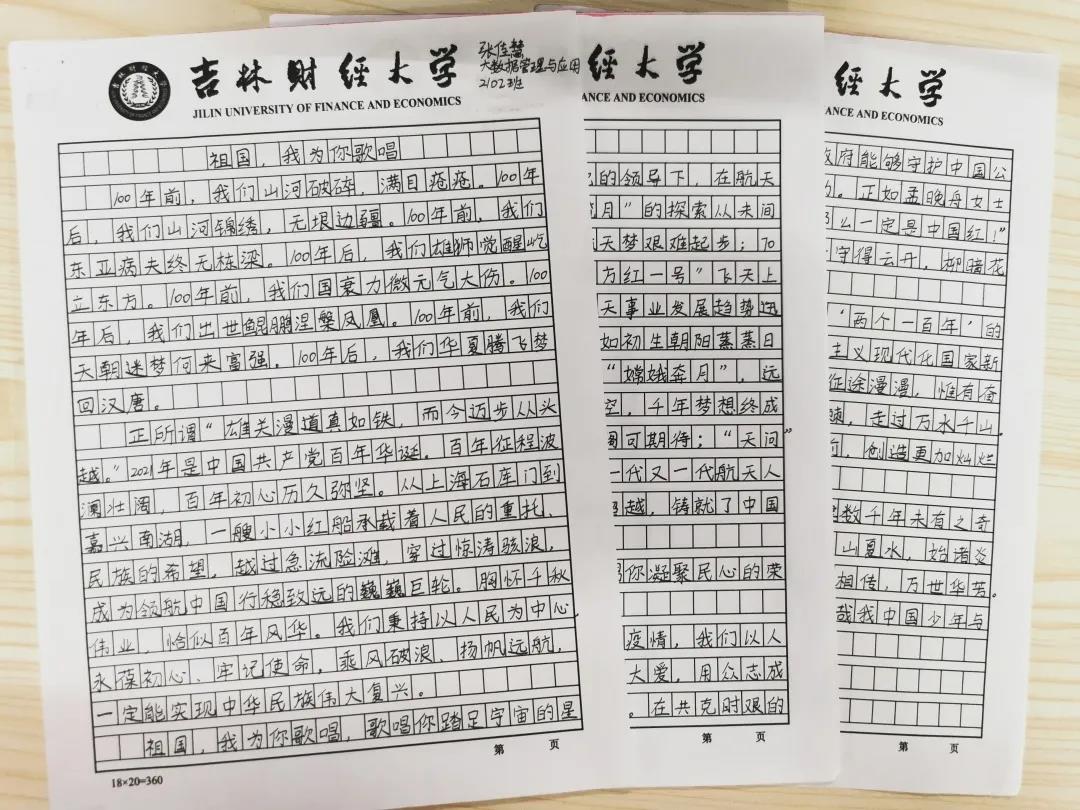 吉林财经大学
JILIN UNIVERSITY OF FINANCE AND ECONOMICS
张佳慧
大数据管理与应用
2102班
祖国，我为你歌唱
100年前，我们山河破碎，满目疮疮。100年
后，我们山河锦绣，无垠边疆。100年前，我们
东亚病夫终无栋梁。100年后，我们雄狮觉醒屹
立东方。100年前，我们国衰力微元气大伤。100
年后，我们出世鲲鹏涅槃凤凰。100年前，我们
天朝迷梦何来富强。100年后，我们华夏腾飞梦
回汉唐。
正所谓“雄关漫道真如铁，而今迈步从头
越。”2021年是中国共产党百年华诞。百年征程波
澜壮阔，百年初心历久弥坚。从上海石库门到
嘉兴南湖，一艘小小红船承载着人民的重托、
民族的希望，越过急流险滩，穿过惊涛骇浪，
成为领航中国行稳致远的巍巍巨轮。胸怀千秋
伟业，恰似百年风华。我们秉持以人民为中心，
永葆初心、牢记使命，乘风破浪、扬帆远航，
一定能实现中华民族伟大复兴。
祖国，我为你歌唱，歌唱你踏足宇宙的星
第 页
18×20=360
经大学
NANCE AND ECONOMICS
的领导下，在航天
月”的探索从未间
天梦艰难起步；70
方红一号”飞天上
天事业发展趋势迅
如初生朝阳蒸蒸日
“嫦娥奔月”，远
空，千年梦想终成
可期待；“天问”
一代又一代航天人
越，铸就了中国
你凝聚民心的荣
疫情，我们以人
大爱，用众志成
。在共克时艰的
第 页
经大学
NANCE AND ECONOMICS
政府能够守护中国公
。正如孟晚舟女士
么一定是中国红！”
守得云开，柳暗花
“两个一百年”的
主义现代化国家新
征途漫漫，惟有奋
，走过万水千山。
，创造更加灿烂
数千年未有之奇
山夏水，始诸炎
相传，万世华芳。
哉我中国少年与
第 页